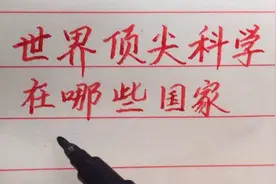 世界顶尖科学
在哪些国家